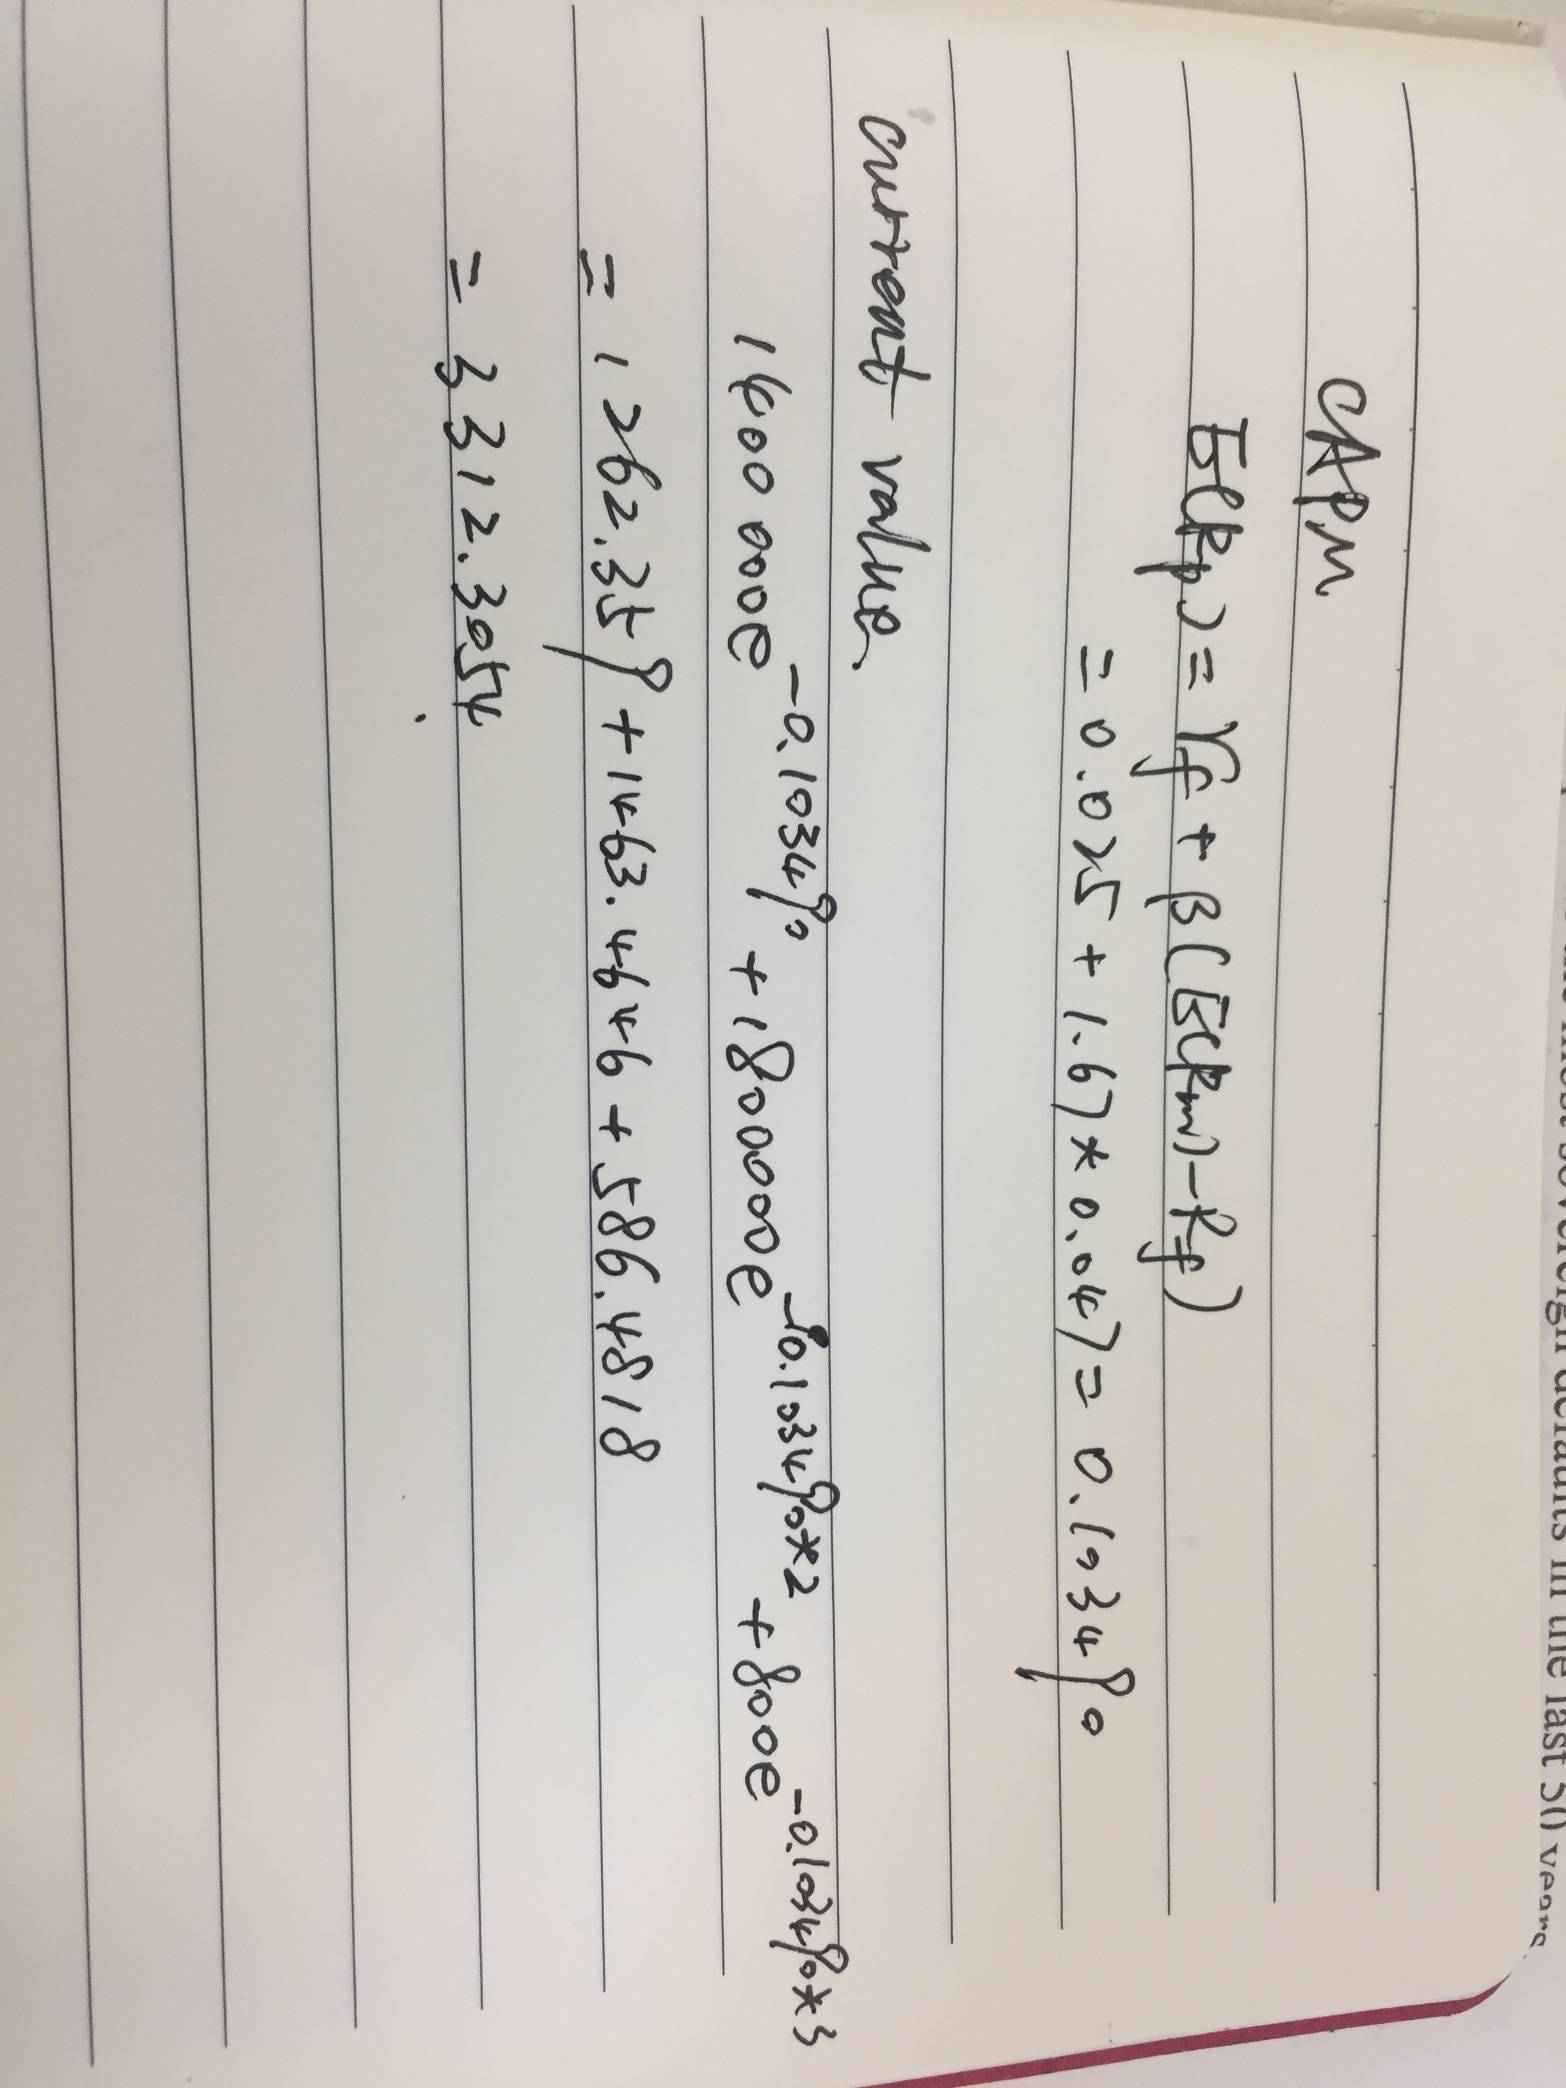 most sovereign defaults in the last 50 years
CAPM
E(Rp) = rf + β(E(Rm) - Rf)
= 0.025 + 1.67 * 0.047 = 0.103490
current value
1400 000e^-0.103490 + 1800000e^-0.103490*2 + 800e^-0.103490*3
= 1262.359 + 1463.4646 + 586.4818
= 3312.3054